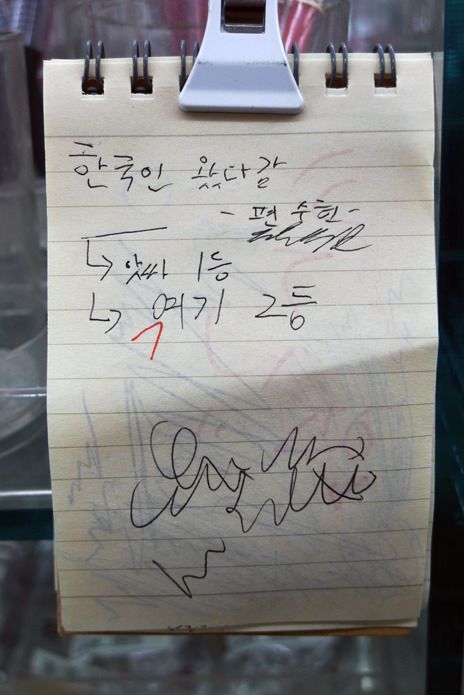 한국인 왔다감
- 편수현 -
↳ 앗싸 1등
↳ 여기 2등